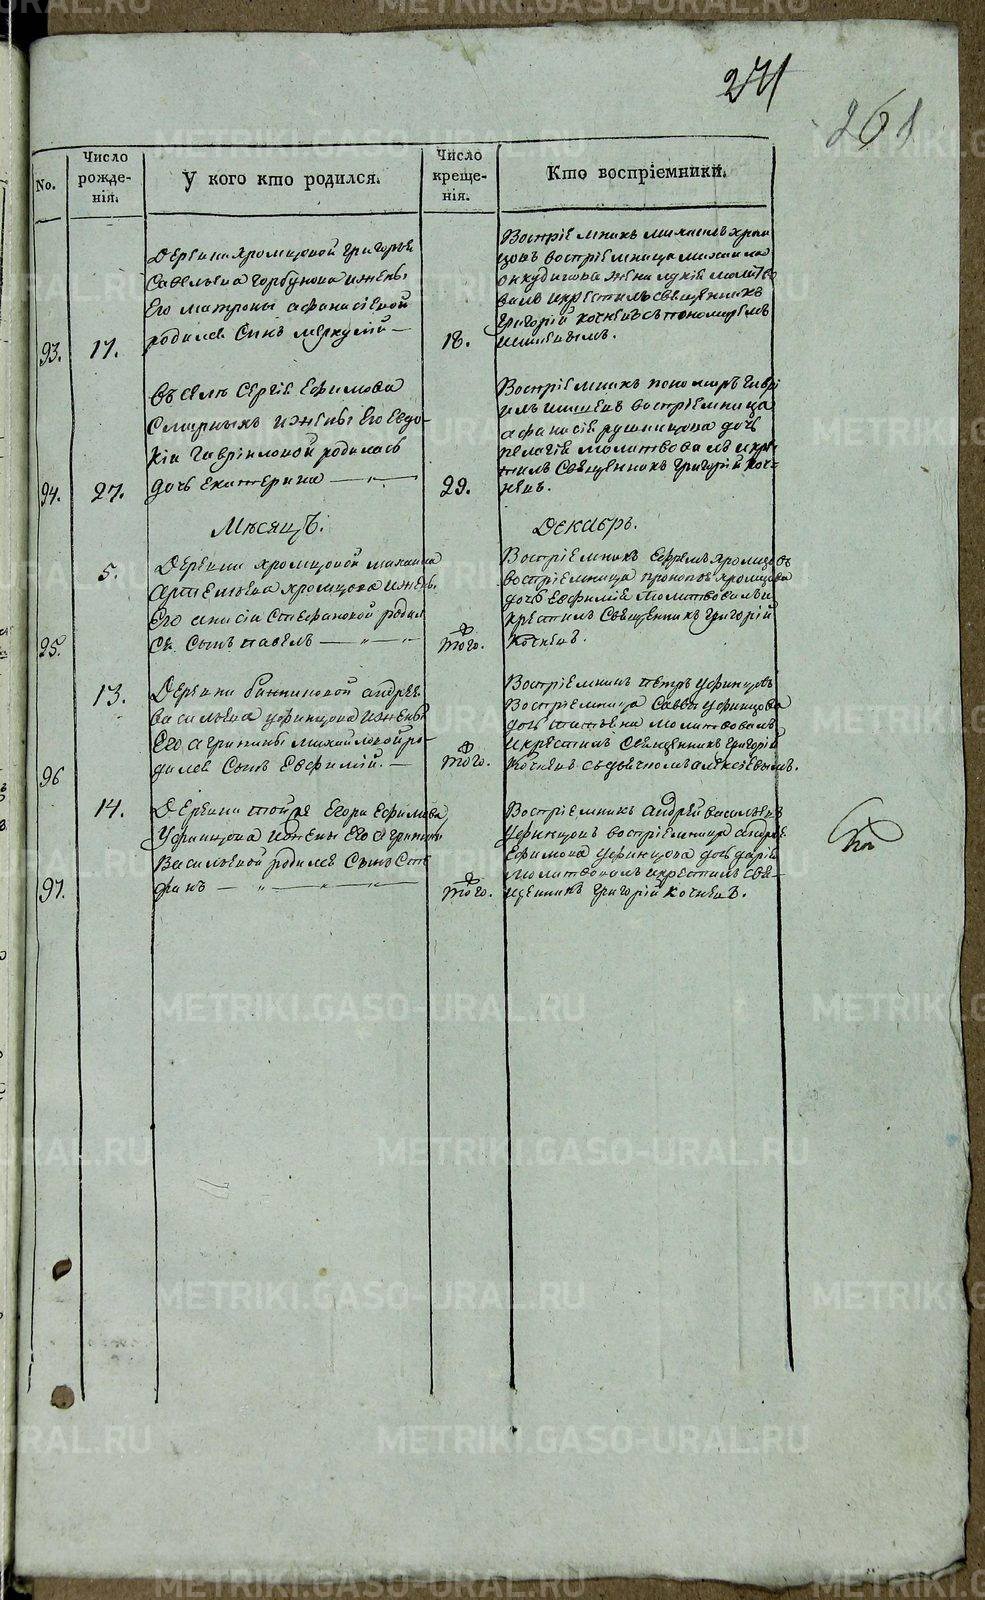 271
261
No.
Число рожде-нія.
У кого кто родился.
Число креще-нія.
Кто воспріемники.
93.
17.
Деревни Хромцовой Григорья
Савельева Горбунова и жены
Его Матроны Афанасіевой
родился Сынъ Меркулій —
18.
Воспріемникъ Михаилъ Хром
цовъ воспріемница Михаила
жена молитво
валъ и крестилъ священникъ
Григорій Кочневъ съ пономаремъ
94.
27.
въ селѣ Сергія Ефимова
Смирныхъ и жены Его Евдо-
кіи Гавриловой родилась
дочь Екатерина
29.
Воспріемникъ пономарь Гаврі
илъ воспріемница
дочь
пелагія молитвовалъ и кре-
стилъ Священникъ Григорій Коч-
невъ.
Мѣсяцъ.
Декабрь.
95.
5.
Деревни Хромцовой Михаила
Артемьева Хромцова и жены
Его Анисіи Стефановой родил
ся Сынъ Павелъ
того.
Воспріемникъ Ефремъ Хромцовъ
воспріемница Прокопья Хромцова
дочь Евфимія молитвовалъ и
крестилъ Священникъ Григорій
Кочневъ.
96
13.
Деревни Андрея
Васильева Уфинцова и жены
Его Агрипины Михайловой ро-
дился Сынъ Евфимій. —
того.
Воспріемникъ Петръ Уфинцовъ
Воспріемница Саввы Уфинцова
дочь Татьяна молитвовалъ
и крестилъ Священникъ Григорій
Кочневъ съ дьячкомъ Алексѣевымъ.
97.
14.
Деревни Егора Ефимова
Уфинцова и жены Его Агрипины
Васильевой родился Сынъ Сте
фанъ
того.
Воспріемникъ Андрей Васильевъ
Уфинцовъ воспріемница Андрея
Ефимова Уфинцова дочь Дарія
молитвовалъ и крестилъ Свя-
щенникъ Григорій Кочневъ.
METRIKI.GASO-URAL.RU